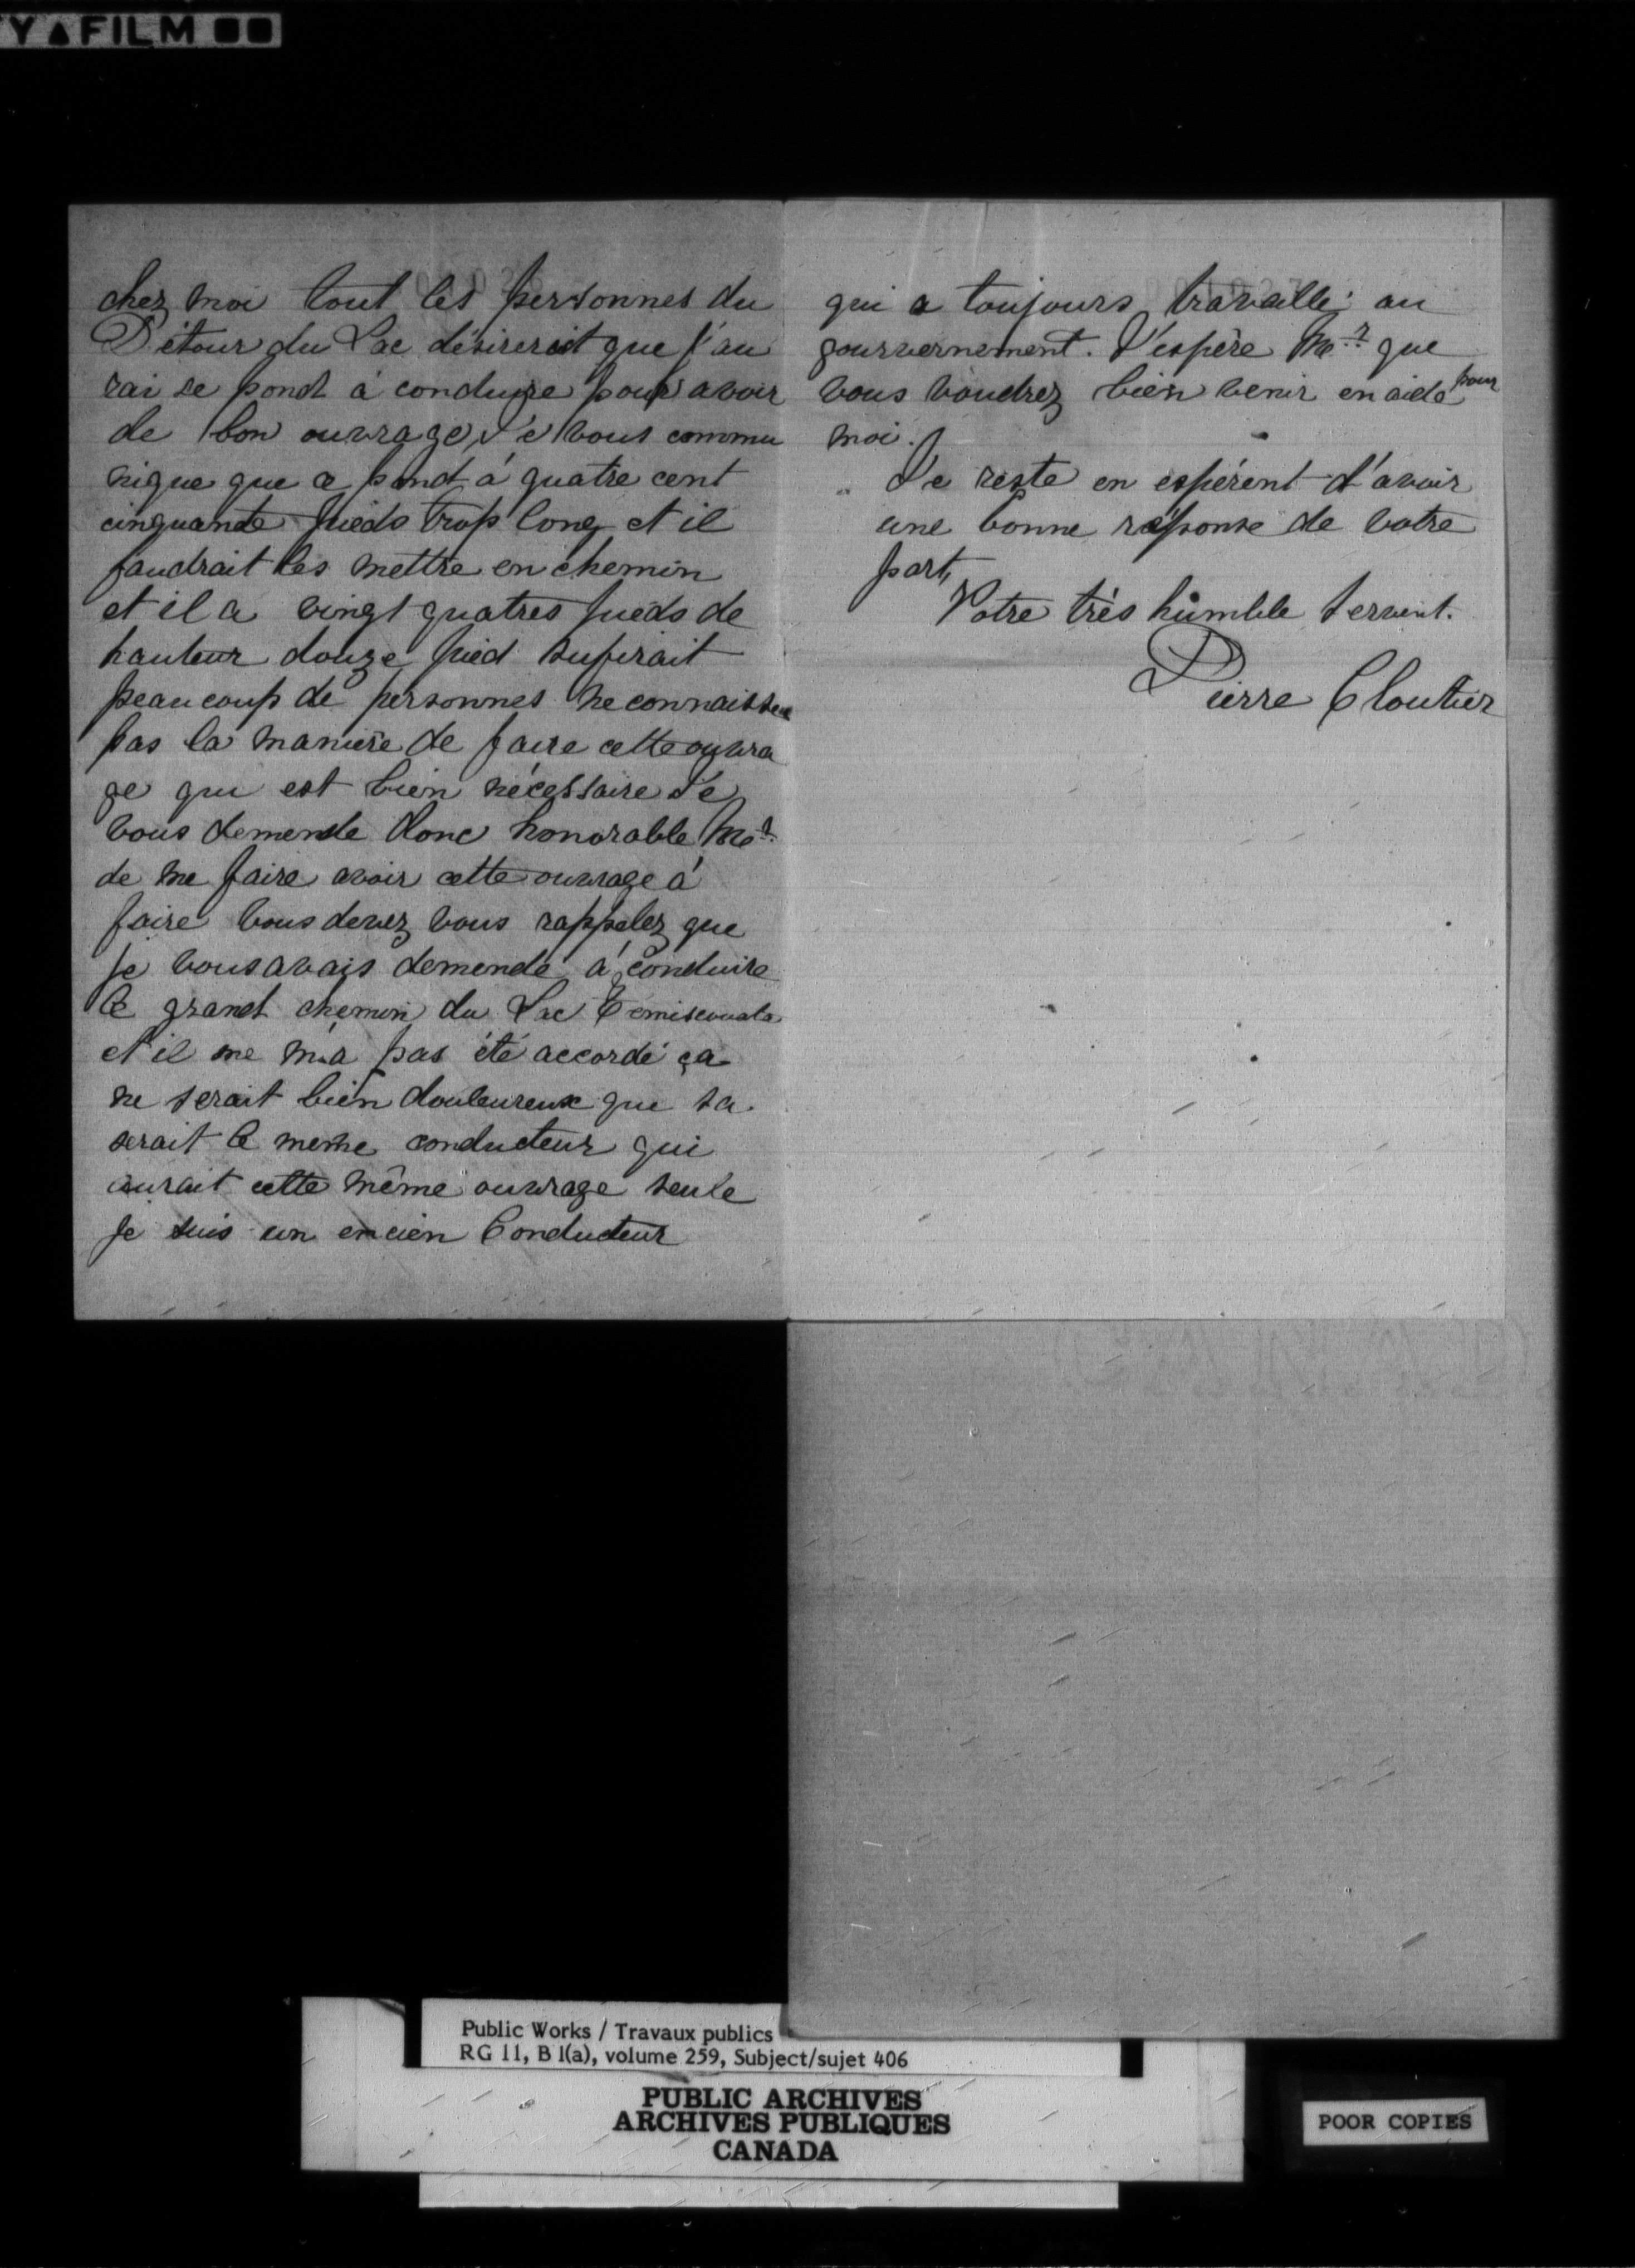 Y▲FILM
chez moi tout les personnes du
Détour du Lac désirerait que j'au
rai se pont à conduire pour avoir
de bon ouvrage, Je vous commu
nique que ce pont à quatre cent
cinquante pieds trop long et il
faudrait les mettre en chemin
et il a vingt quatres pieds de
hauteur douze pied sufirait
beaucoup de personnes ne connaissen
pas la manière de faire cette ouvra
ge qui est bien nécessaire Je
vous demende donc honorable Mr.
de me faire avoir cette ouvrage à
faire vous devez vous rappelez que
je vous avais demendé à conduire
le grand chemin du Lac Temiscouata
et il me m'a pas été accordé ça
me serait bien douleureux que sa
serait le meme conducteur qui
aurait cette même ouvrage seule
Je suis un encien Conducteur
qui a toujours travaillé au
gourvernement. J'espère Mr. que
vous voudrez bien venir en aide pour
moi.
Je reste en espérent d'avoir
une bonne réponse de votre
part,
Votre très humble servent.
Pierre Cloutier
Public Works / Travaux publics
RG 11, B 1(a), volume 259, Subject/sujet 406
PUBLIC ARCHIVES
ARCHIVES PUBLIQUES
CANADA
POOR COPIES